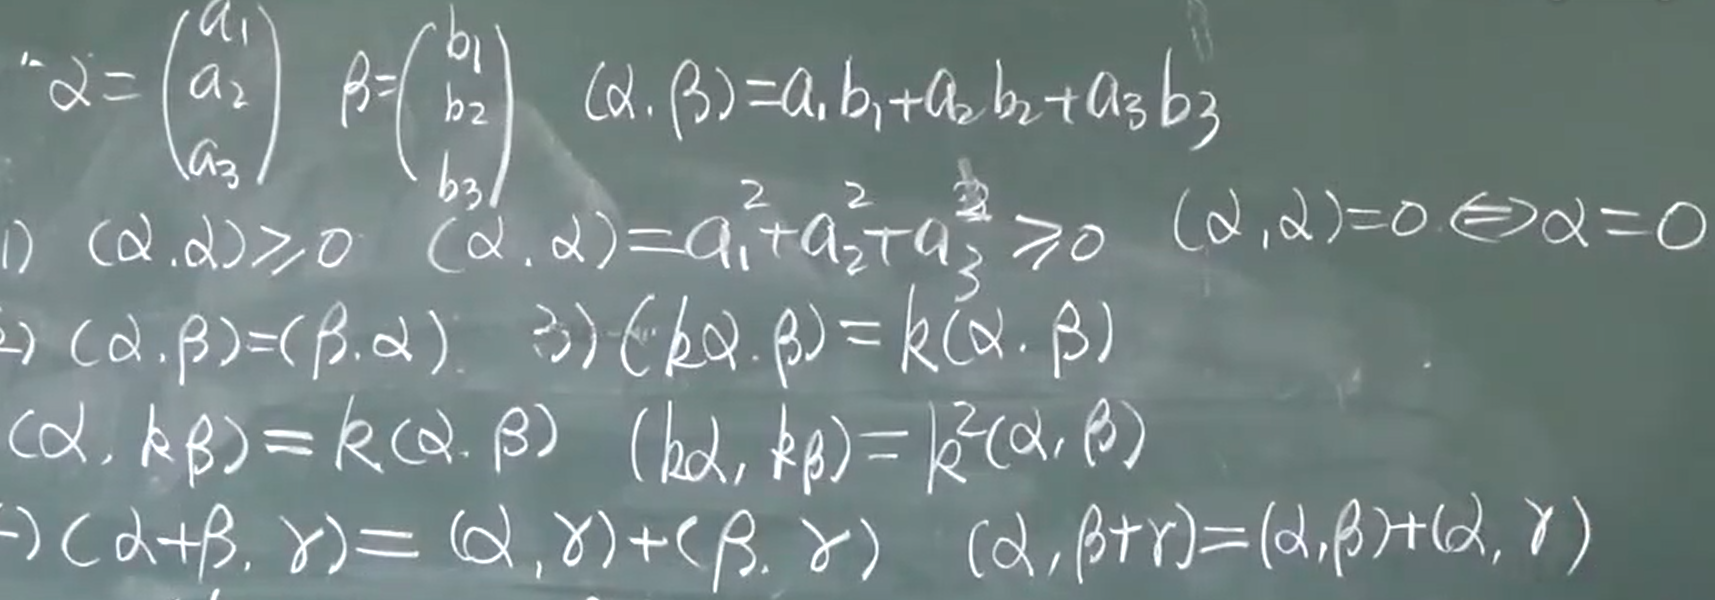 α = (a₁ a₂ a₃) β = (b₁ b₂ b₃) (α.β) = a₁b₁ + a₂b₂ + a₃b₃
1) (α.α) ⩾ 0 (α.α) = a₁² + a₂² + a₃² ⩾ 0 (α,α) = 0 ⇔ α = 0
2) (α.β) = (β.α). 3) (kα.β) = k(α.β)
(α, kβ) = k(α.β) (kα, kβ) = k²(α,β)
) (α+β, γ) = (α,γ) + (β.γ) (α, β+γ) = (α,β) + (α,γ)